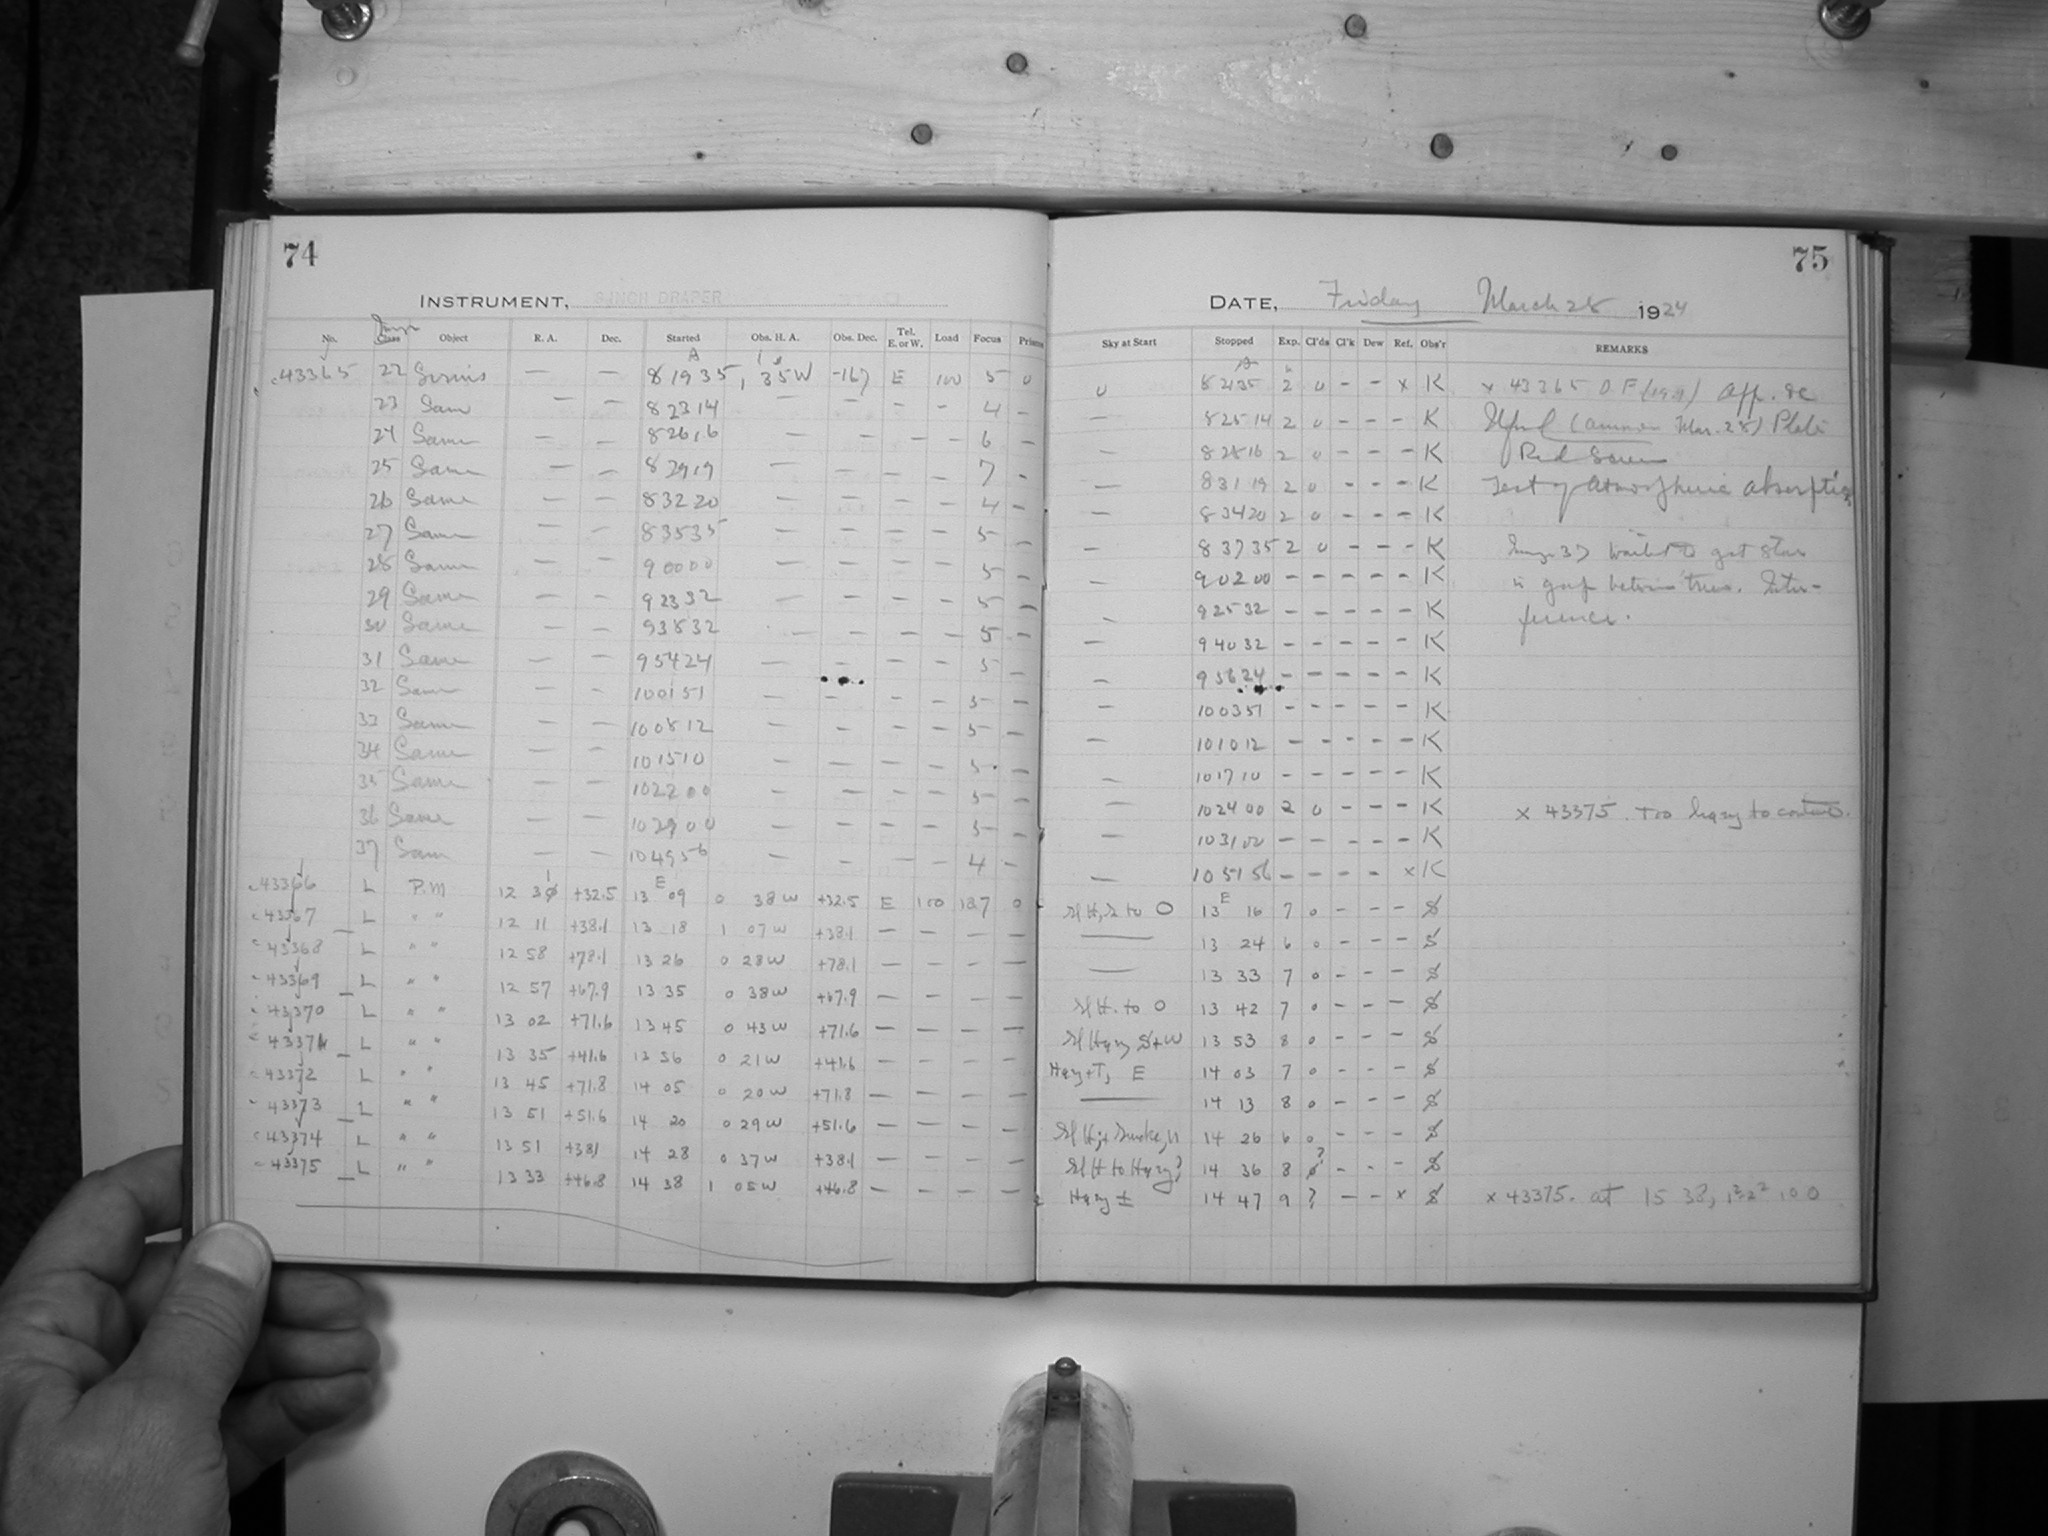 74
INSTRUMENT, 8-INCH DRAPER
No. Image Class Object R. A. Dec. Started Obs. H. A. Obs. Dec. Tel. E. or W. Load Focus Prism
A
c43365 22 Sirius — — 8 19 35 1 35 W -16.7 E 100 5 0
23 Same — — 8 23 14 — — - - 4 -
24 Same — — 8 26 16 — — - - 6 -
25 Same — — 8 29 19 — — - - 7 -
26 Same — — 8 32 20 — — - - 4 -
27 Same — — 8 35 35 — — - - 5 -
28 Same — — 9 00 00 — — - - 5 -
29 Same — — 9 23 32 — — - - 5 -
30 Same — — 9 38 32 — — - - 5 -
31 Same — — 9 54 24 — — - - 5 -
32 Same — — 10 01 51 — — - - 5 -
33 Same — — 10 08 12 — — - - 5 -
34 Same — — 10 15 10 — — - - 5 -
35 Same — — 10 22 00 — — - - 5 -
36 Same — — 10 29 00 — — - - 5 -
37 Same — — 10 49 56 — — - - 4 -
E
c43366 L P.M 12 31 +32.5 13 09 0 38 W +32.5 E 100 12.7 0
c43367 L " " 12 11 +38.1 13 18 1 07 W +38.1 — — — —
c43368 L " " 12 58 +78.1 13 26 0 28 W +78.1 — — — —
c43369 L " " 12 57 +67.9 13 35 0 38 W +67.9 — — — —
c43370 L " " 13 02 +71.6 13 45 0 43 W +71.6 — — — —
c43371 L " " 13 35 +41.6 13 56 0 21 W +41.6 — — — —
c43372 L " " 13 45 +71.8 14 05 0 20 W +71.8 — — — —
c43373 L " " 13 51 +51.6 14 20 0 29 W +51.6 — — — —
c43374 L " " 13 51 +38.1 14 28 0 37 W +38.1 — — — —
c43375 L " " 13 33 +46.8 14 38 1 05 W +46.8 — — — —
75
DATE, Friday March 28 1924
Sky at Start Stopped Exp. Cl'ds Cl'k Dew Ref. Obs'r REMARKS
A
0 8 21 35 2 0 - - x K x 43365 O.F. app. &c
— 8 25 14 2 0 - - - K Ilford (Mar. 28) Plate
— 8 28 16 2 0 - - - K Red Screen
— 8 31 19 2 0 - - - K Test of Atmospheric absorption
— 8 34 20 2 0 - - - K
— 8 37 35 2 0 - - - K Image 37 waited to get star
— 9 02 00 - - - - - K in gap between trees. Inter-
— 9 25 32 - - - - - K ference.
— 9 40 32 - - - - - K
— 9 56 24 - - - - - K
— 10 03 51 - - - - - K
— 10 10 12 - - - - - K
— 10 17 10 - - - - - K
— 10 24 00 2 0 - - - K x 43375. Too hazy to continue.
— 10 31 00 - - - - - K
— 10 51 56 - - - - x K
E
Sl H, S to O 13 16 7 0 - - - S
— 13 24 6 0 - - - S
— 13 33 7 0 - - - S
Sl H. to O 13 42 7 0 - - - S
Sl Hazy S+W 13 53 8 0 - - - S
Hazy+T, E 14 03 7 0 - - - S
— 14 13 8 0 - - - S
Sl H,+Smoke, 14 26 6 0 - - - S
Sl H to Hazy? 14 36 8 ? - - - S
Hazy ± 14 47 9 ? - - x S x 43375. at 15 38,